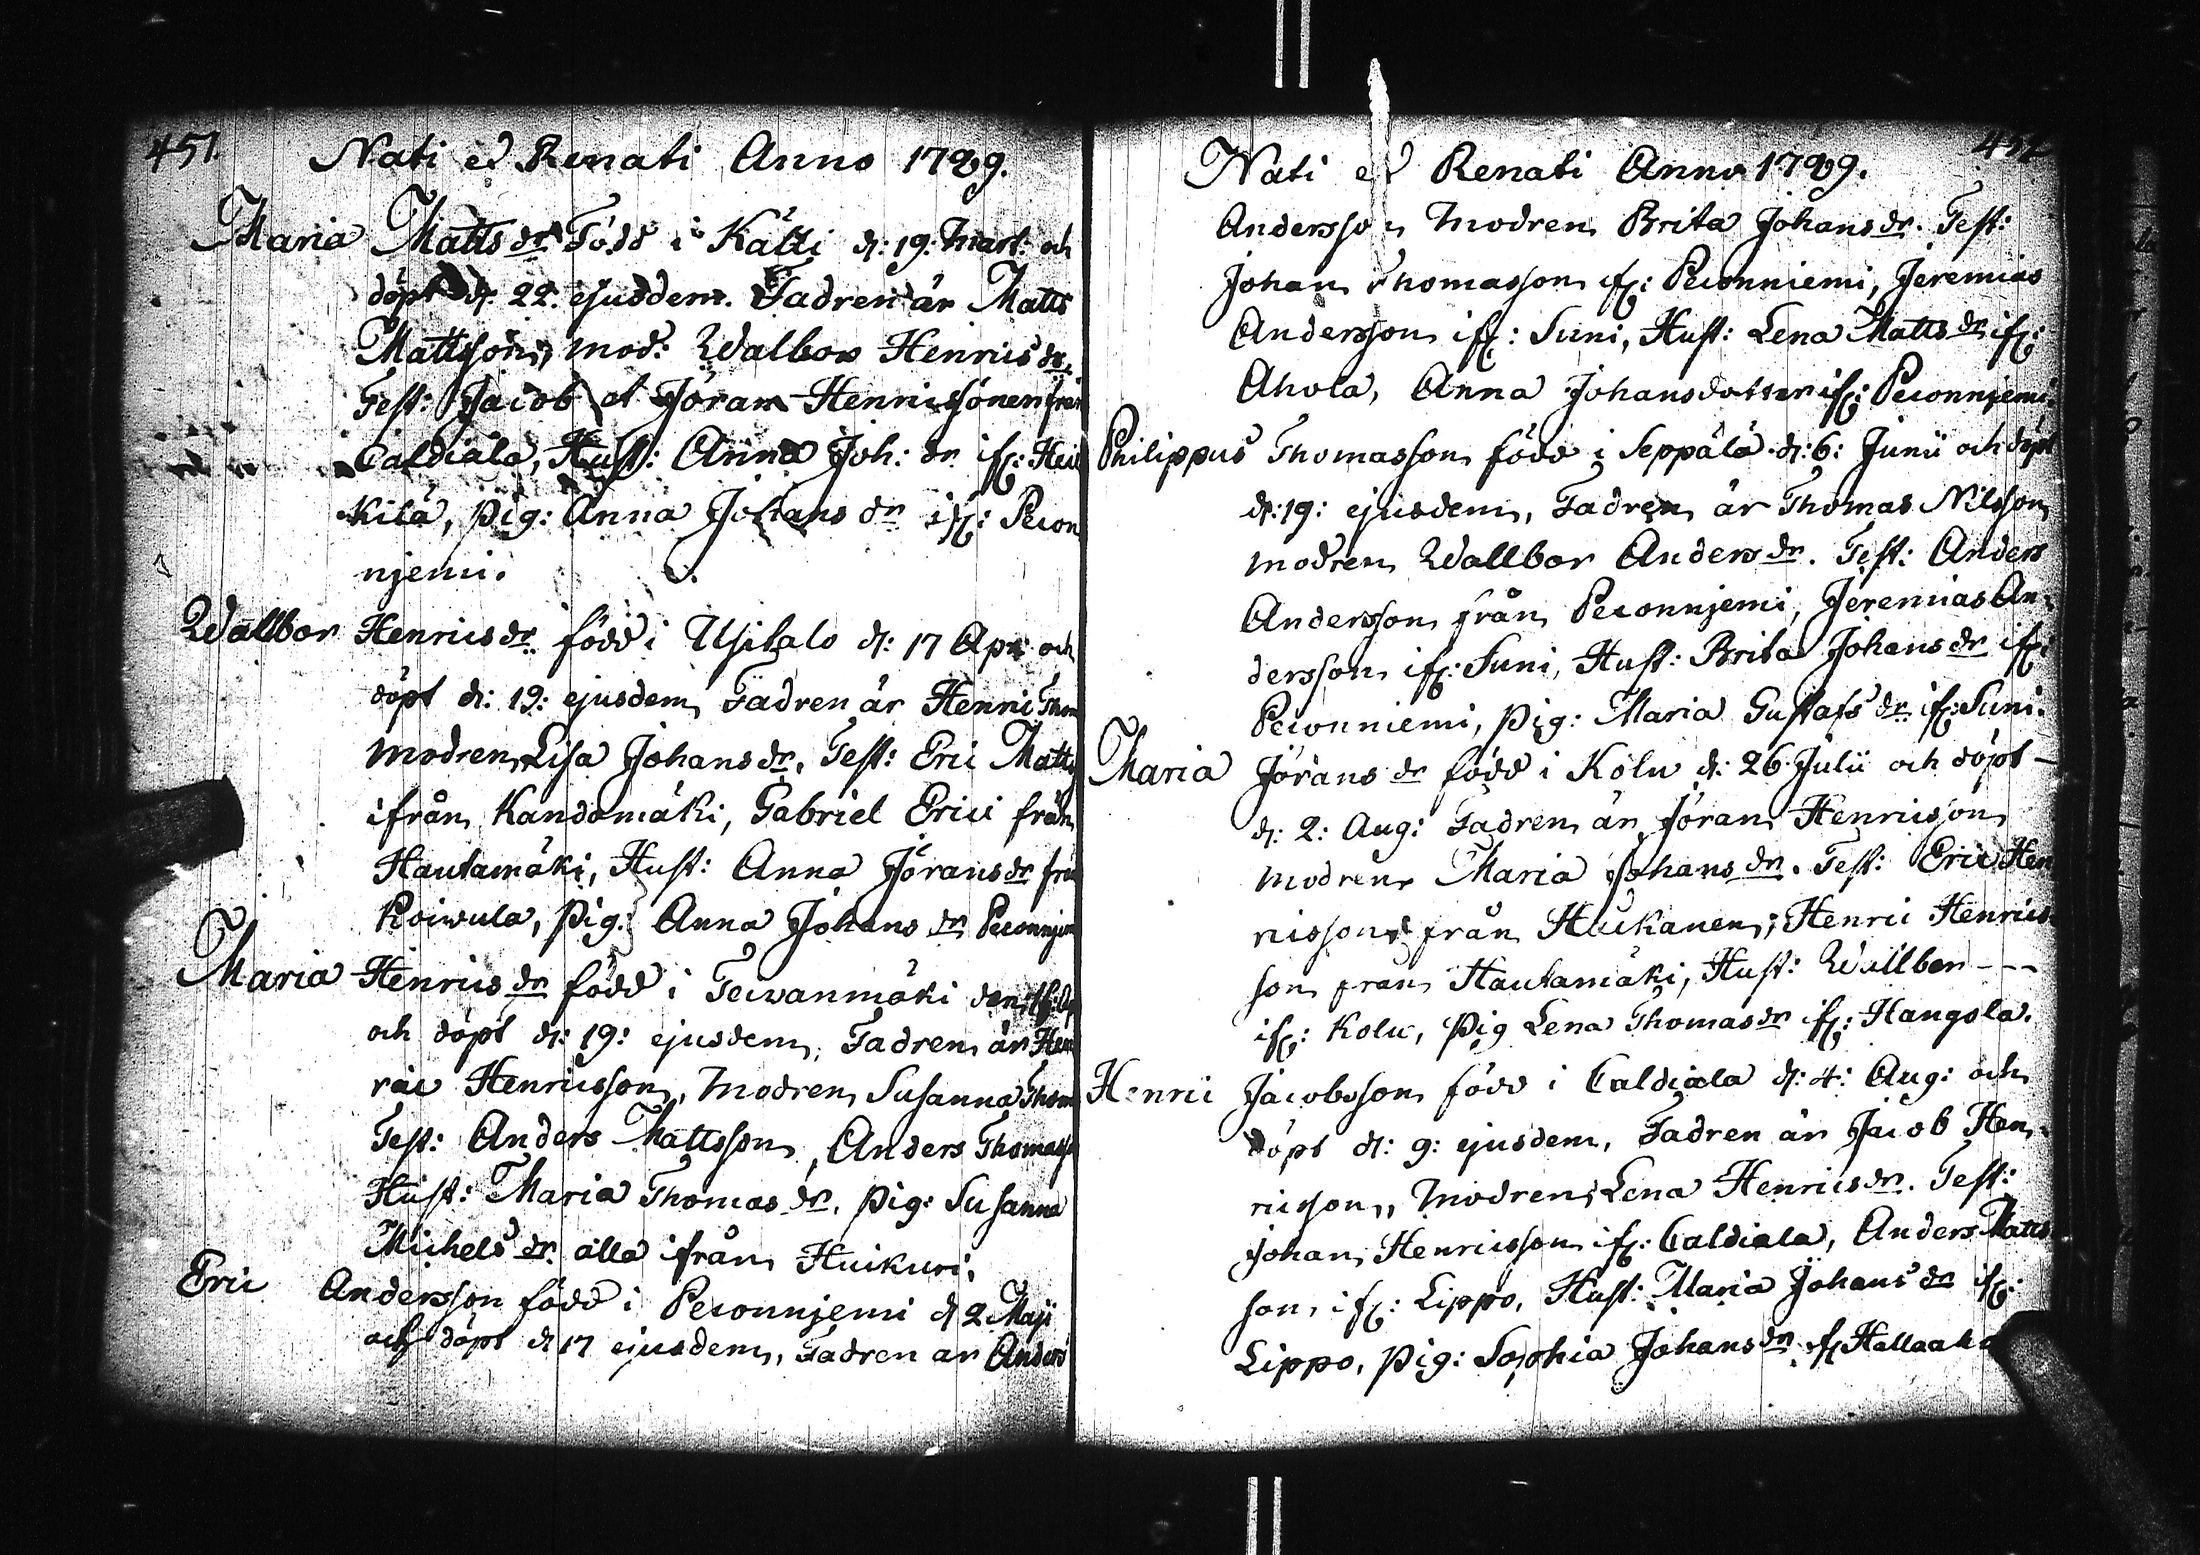 451.
Nati et Renati Anno 1729.
Maria Mattsdr Född i Kätki d: 19: Mart: och
döpt d: 22. ejusdem. Fadren är Matts
Mattsson, mod: Walbor Henricsdr,
Test: Jacob et Jöran Henricssöner från
Caldiala, Hust: Anna Joh: dr if: Heic
kilä, pig: Anna Johansdr if: Pecon
njemi.
Wallbor Henricsdr född i Usitalo d: 17 Apr: och
döpt d: 19: ejusdem, Fadren är Henric Thom
modren, Lisa Johansdr, Test: Eric Matts
ifrån Kandomäki, Gabriel Erici från
Hautamäki, Hust: Anna Jöransdr från
Koiwula, pig: Anna Johansdr Peconnjemi
Maria Henricsdr född i Terwanmäki den
och döpt d: 19: ejusdem, Fadren är Hen
ric Henricsson, Modren, Susanna Thom
Test: Anders Mattsson, Anders Thomass
Hust: Maria Thomasdr, pig: Susanna
Michelsdr alla ifrån Huikuri,
Eric Andersson född i Peconnjemi d 2 Maji
och döpt d 17 ejusdem, Fadren är Anders
452
Nati et Renati Anno 1729.
Andersson Modren Brita Johansdr. Test:
Johan Thomasson if: Peconniemi, Jeremias
Andersson if: Suni, Hust: Lena Mattsdr if:
Ahola, Anna Johansdotter if: Peconnjemi.
Philippus Thomasson född i Seppälä d: 6: Junii och döpt
d: 19: ejusdem, Fadren är Thomas Nilsson
modren Wallbor Andersdr. Test: Anders
Andersson från Peconnjemi, Jeremias An-
dersson if: Suni, Hust: Brita Johansdr if:
Peconniemi, pig: Maria Gustafsdr if: Suni.
Maria Jöransdr född i Kolu d: 26 Julii och döpt –
d: 2: Aug: Fadren är Jöran Henricsson
modren Maria Johansdr. Test: Eric Hen
ricsson från Huikanen, Henric Henrics
son från Hautamäki, Hust: Wallbor - - -
if: Kolu, pig Lena Thomasdr if: Hangola.
Henric Jacobsson född i Caldiala d: 4: Aug: och
döpt d: 9: ejusdem, Fadren är Jacob Hen-
ricsson, Modren, Lena Henricsdr. Test:
Johan Henricsson if: Caldiala, Anders Matts
son, if: Lippo, Hust: Maria Johansdr if:
Lippo, pig: Sophia Johansdr if Hallaaho